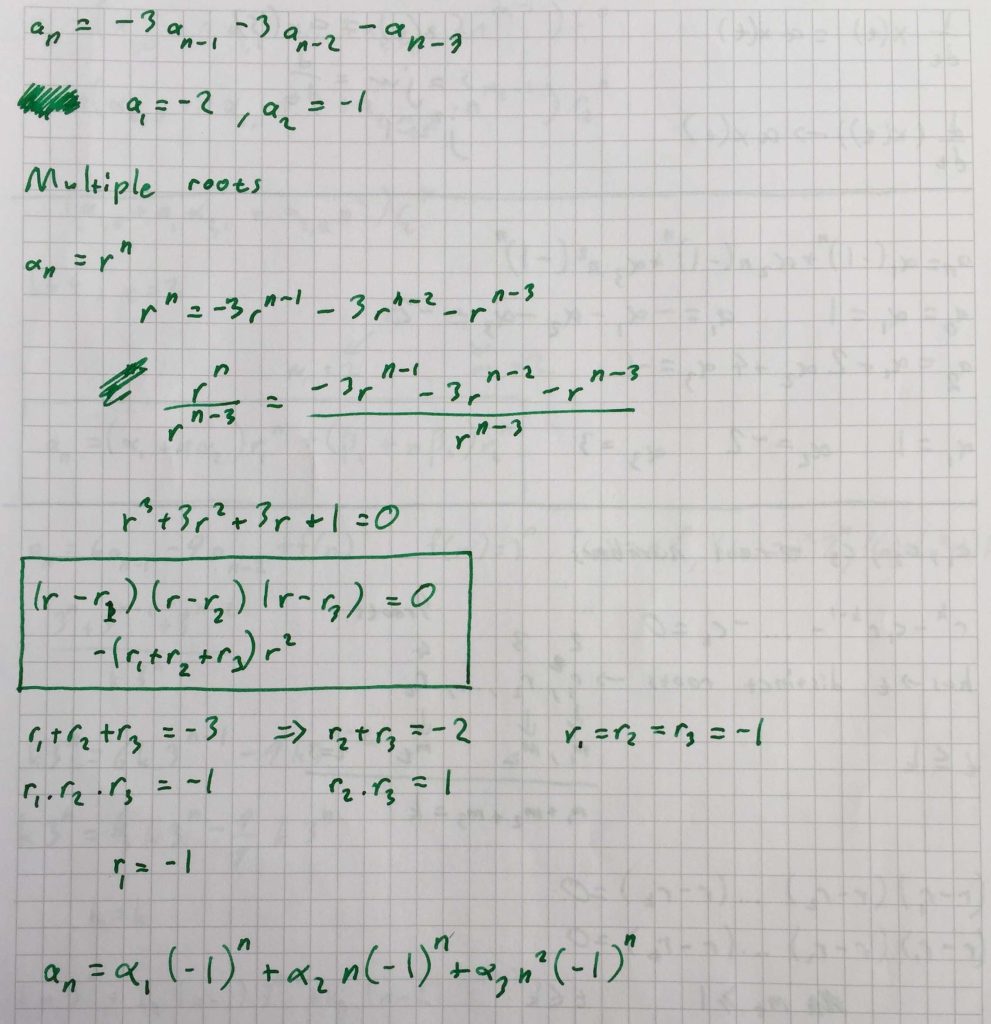 aₙ = -3aₙ₋₁ -3aₙ₋₂ - aₙ₋₃
a₁ = -2 , a₂ = -1
Multiple roots
aₙ = rⁿ
rⁿ = -3rⁿ⁻¹ - 3rⁿ⁻² - rⁿ⁻³
rⁿ / rⁿ⁻³ = (-3rⁿ⁻¹ - 3rⁿ⁻² - rⁿ⁻³) / rⁿ⁻³
r³ + 3r² + 3r + 1 = 0
(r - r₁) (r - r₂) (r - r₃) = 0
-(r₁ + r₂ + r₃) r²
r₁ + r₂ + r₃ = -3 ⇒ r₂ + r₃ = -2 r₁ = r₂ = r₃ = -1
r₁ . r₂ . r₃ = -1 r₂ . r₃ = 1
r₁ = -1
aₙ = α₁ (-1)ⁿ + α₂ n(-1)ⁿ + α₃ n² (-1)ⁿ